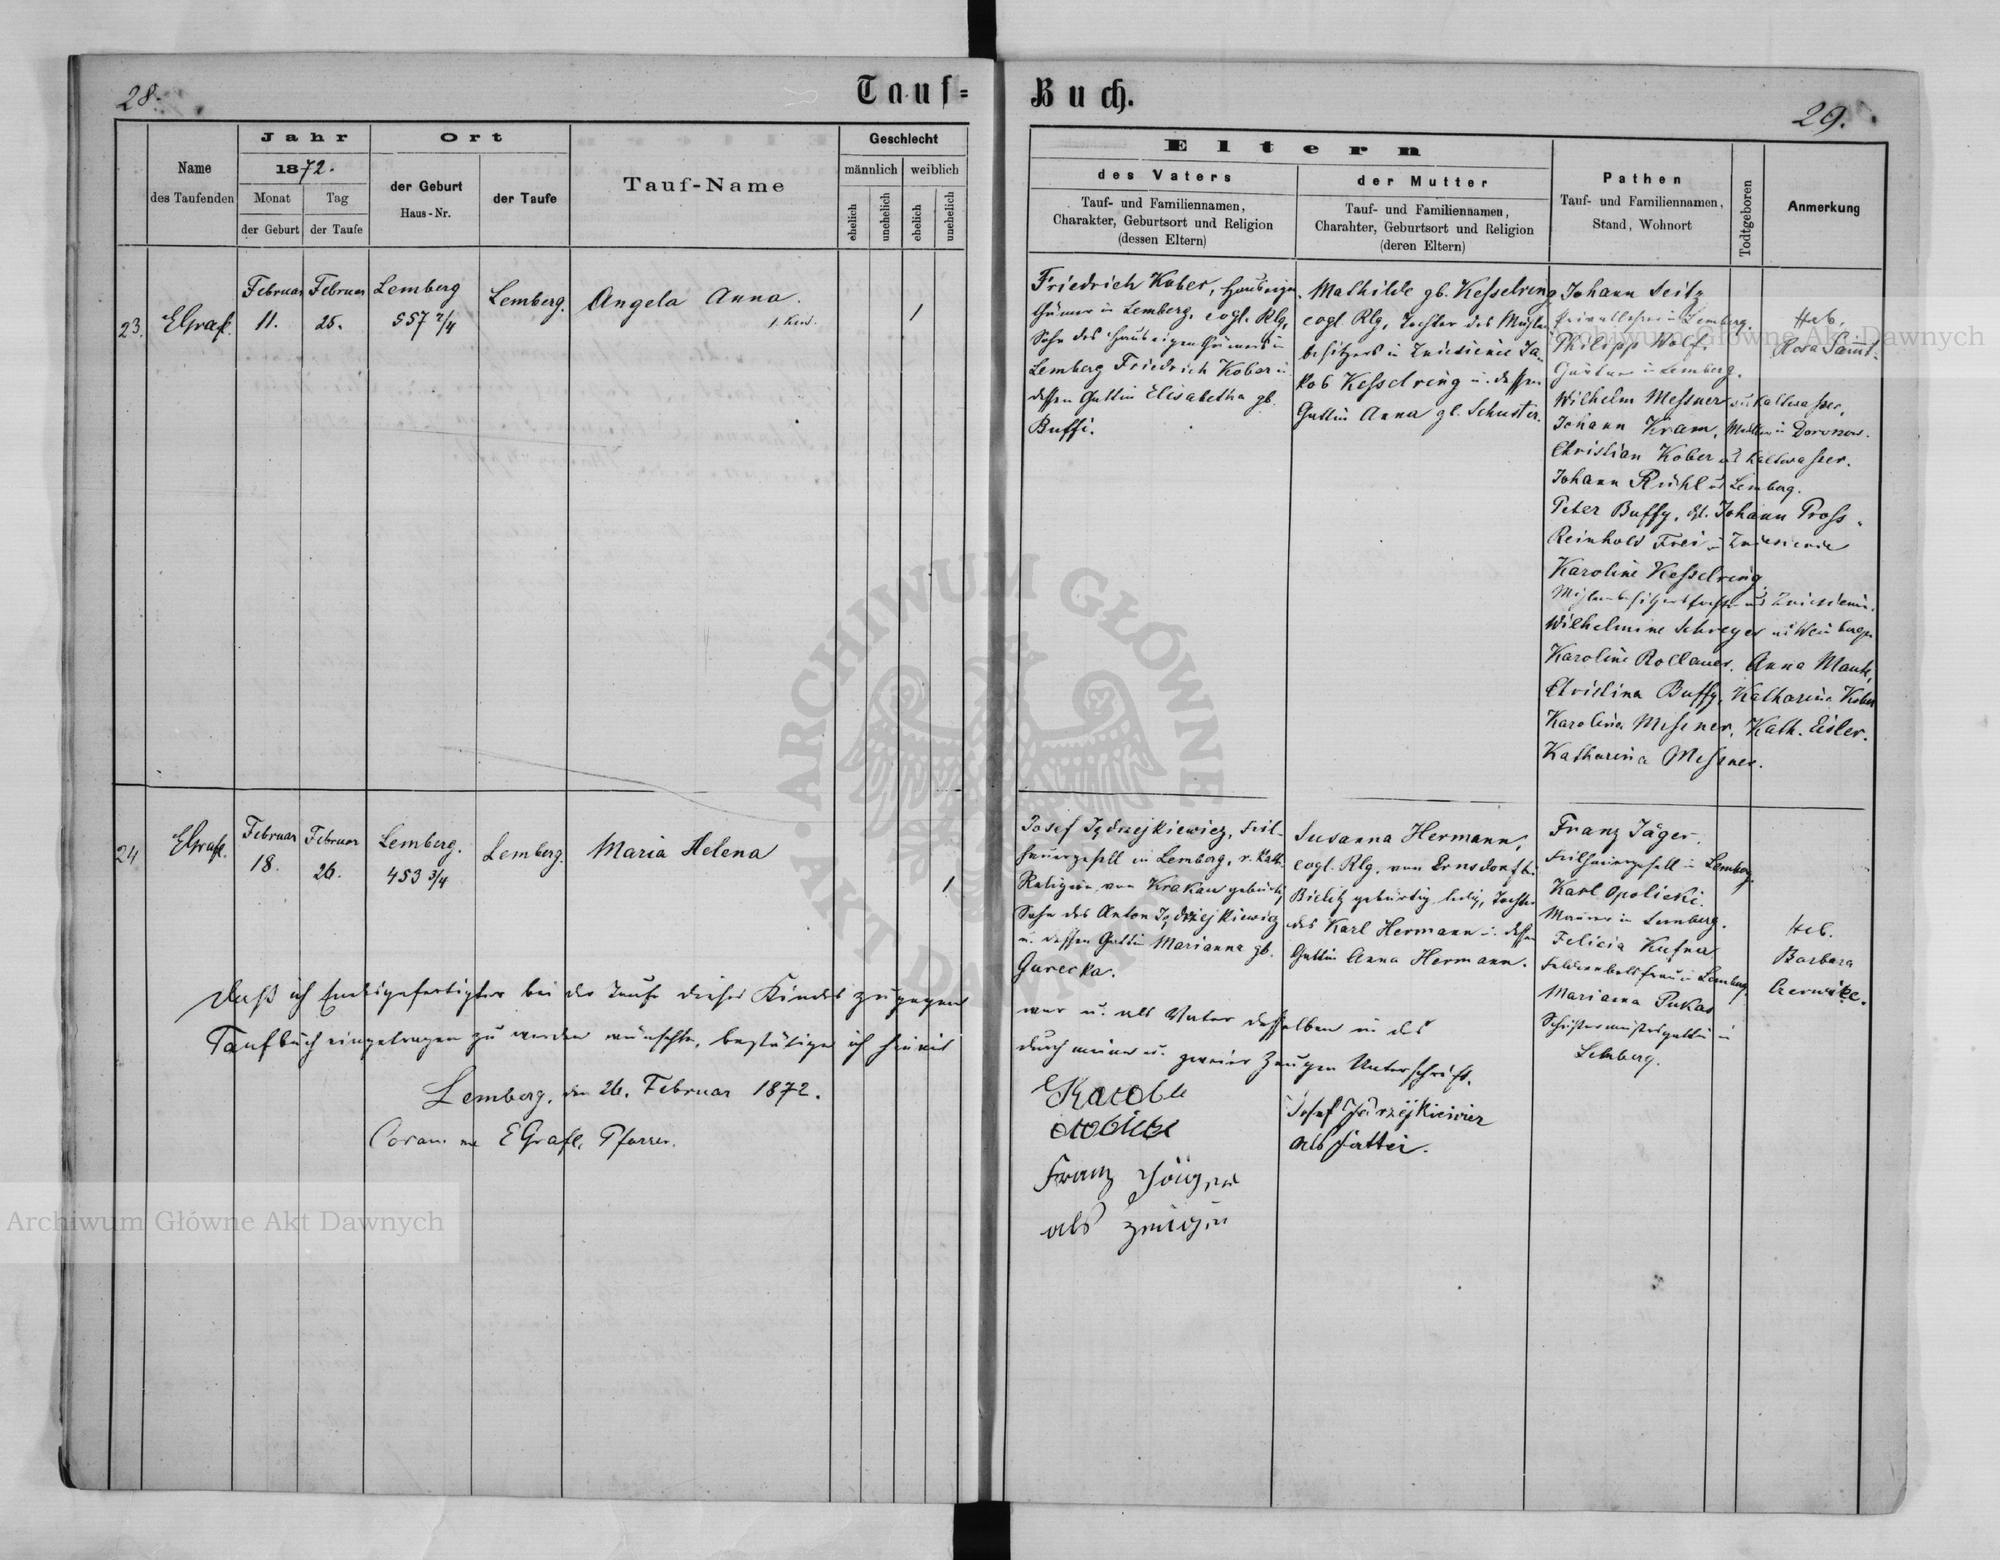 28.
Tauf=
Buch.
29.
Name
des Taufenden
Jahr
1872.
Monat
der Geburt
Tag
der Taufe
Ort
der Geburt
Haus-Nr.
der Taufe
Tauf-Name
Geschlecht
männlich
weiblich
ehelich
unehelich
ehelich
unehelich
Eltern
des Vaters
Tauf- und Familiennamen,
Charakter, Geburtsort und Religion
(dessen Eltern)
der Mutter
Tauf- und Familiennamen,
Charahter, Geburtsort und Religion
(deren Eltern)
Pathen
Tauf- und Familiennamen,
Stand, Wohnort
Todtgeboren
Anmerkung
23.
EGrafl.
Februar
11.
Februar
25.
Lemberg
557 2/4
Lemberg.
Angela Anna.
1. Kind.
1
Friedrich Kober, Hauseigen-
thümer in Lemberg, evgl. Rlg,
Sohn des Hauseigenthümers in
Lemberg Friedrich Kober u.
dessen Gattin Elisabetha gb.
Buffi.
Mathilde gb. Kesselring
evgl. Rlg, Tochter des Mühlen-
besitzers in Zniesienie Ja-
kob Kesselring u. dessen
Gattin Anna gb. Schuster.
Johann Seitz
Privatlehrer in Lemberg.
Philipp Wolf.
Gärtner in Lemberg.
Wilhelm Messner aus Kaltwasser,
Johann Kram, in Dornow.
Christian Kober aus Kaltwasser.
Johann Rühl aus Lemberg.
Peter Buffy, Johann Pross,
Reinhold Frei in Zniesienie
Karoline Kesselring,
Mühlenbesitzerstochter aus Zniesienie.
Wilhelmine Schreyer aus Weinbergen
Karoline Rollauer. Anna Mauk,
Christina Buffy, Katharina Kober
Karolina Messner, Kath. Eisler.
Katharina Messner.
Heb.
Rosa Samt.
24
EGrafl.
Februar
18.
Februar
26.
Lemberg.
453 3/4
Lemberg.
Maria Helena
1
Josef Jędrzejkiewicz, Feil-
hauergesell in Lemberg, r. kath.
Religion, von Krakau gebürtig,
Sohn des Anton Jędrzejkiewicz
u. dessen Gattin Marianna gb.
Gurecka.
Susanna Hermann,
evgl. Rlg. von Ernsdorf bei
Bielitz gebürtig, ledig, Tochter
des Karl Hermann u. dessen
Gattin Anna Hermann.
Franz Jäger.
Feilhauergesell in Lemberg.
Karl Opolicki.
Maurer in Lemberg.
Felicia Kufner
in Lemberg.
Marianna Pukas
Schustermeistersgattin in
Lemberg.
Heb.
Barbara
Daß ich Endesgefertigter bei der Taufe dieses Kindes zugegen
war u. als Vater desselben in das
Taufbuch eingetragen zu werden wünschte, bestätige ich hiemit
durch meine u. zweier Zeugen Unterschrift.
Lemberg, den 26. Februar 1872.
Coram me EGrafl, Pfarrer.
Josef Jędrzejkiewicz
als Vatter.
Franz
als
Archiwum Główne Akt Dawnych
Archiwum Główne Akt Dawnych
ARCHIWUM GŁÓWNE AKT DAWNYCH